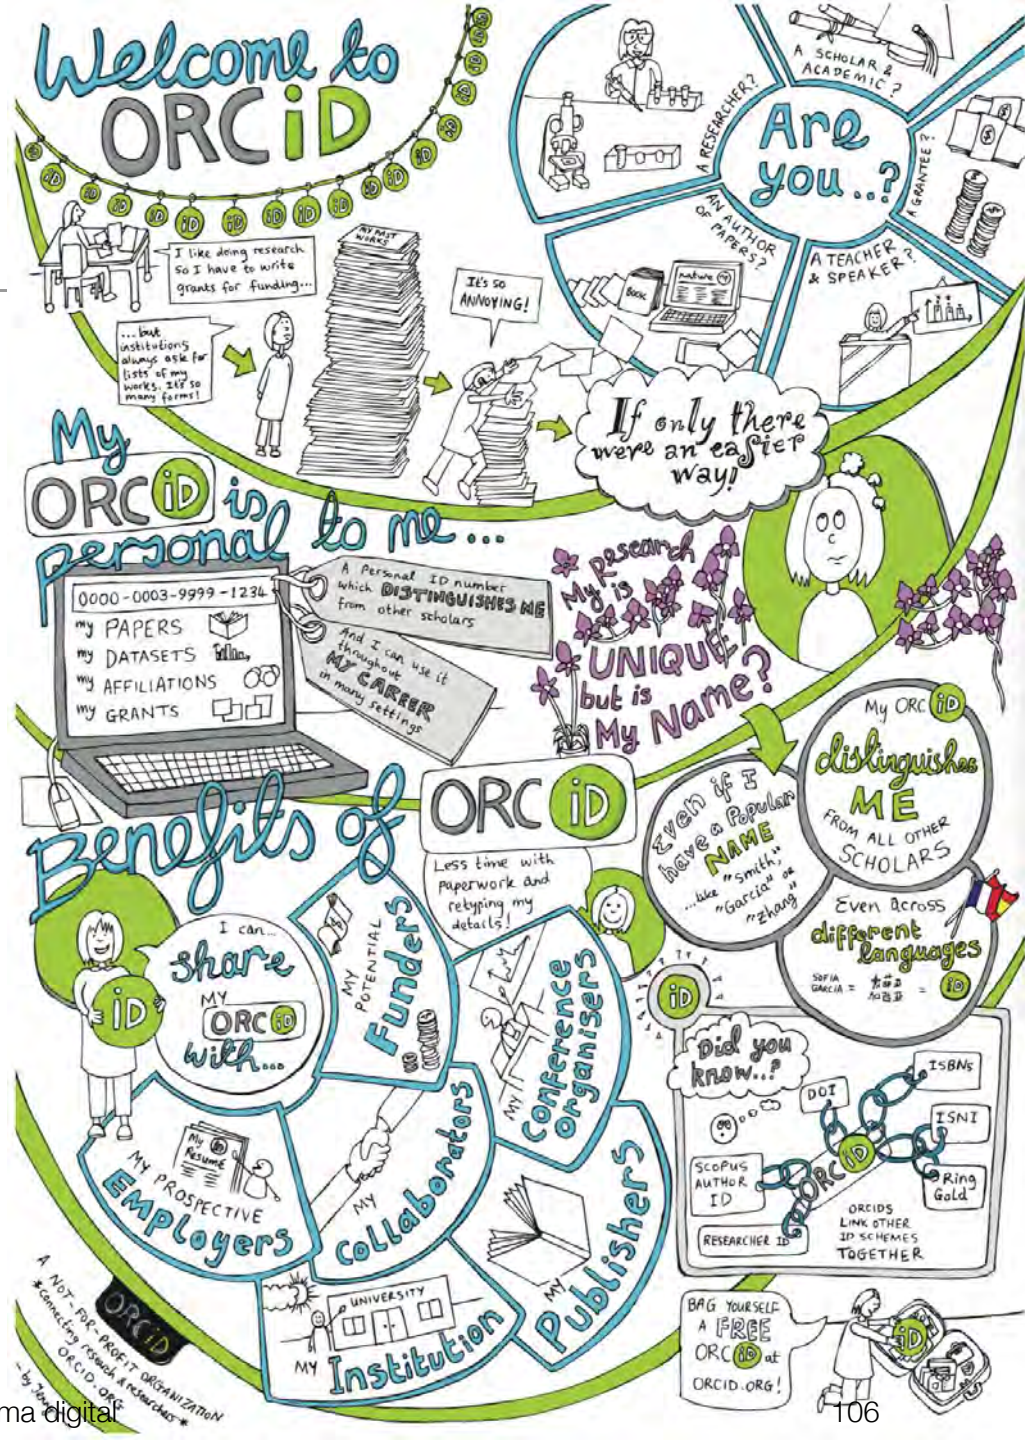 Welcome to
ORCiD
I like doing research
so I have to write
grants for funding...
...but
institutions
always ask for
lists of my
works. It's so
many forms!
MY PAST
WORKS
It's so
ANNOYING!
If only there
were an easier
way!
Are
you..?
A RESEARCHER?
A SCHOLAR &
ACADEMIC?
A GRANTEE?
A TEACHER
& SPEAKER?
AN AUTHOR
OF PAPERS?
BOOK
nature
My
ORCiD is
personal to me...
0000-0003-9999-1234
my PAPERS
my DATASETS
my AFFILIATIONS
my GRANTS
A Personal ID number
which DISTINGUISHES ME
from other scholars
And I can use it
throughout
MY CAREER
in many settings
My Research
is
UNIQUE
but is
My Name?
My ORCiD
distinguishes
ME
FROM ALL OTHER
SCHOLARS
Even if I
have a Popular
NAME
...like "Smith,"
"Garcia" or
"Zhang"
Even across
different
languages
SOFIA
GARCIA =
= iD
Benefits of
ORCiD
Less time with
paperwork and
retyping my
details!
I can...
share
MY
ORCiD
with...
iD
MY
POTENTIAL
Funders
MY
Conference
organisers
MY
Collaborators
MY
Publishers
My
Resumé
MY PROSPECTIVE
Employers
UNIVERSITY
MY
Institution
iD
Did you
know..?
DOI
ISBNs
ISNI
Ring
Gold
SCOPUS
AUTHOR
ID
RESEARCHER ID
ORCiD
ORCIDS
LINK OTHER
ID SCHEMES
TOGETHER
BAG YOURSELF
A FREE
ORCiD at
ORCID.ORG!
iD
ORCiD
A NOT-FOR-PROFIT ORGANIZATION
*connecting research & researchers*
ORCID.ORG
ma digital
106